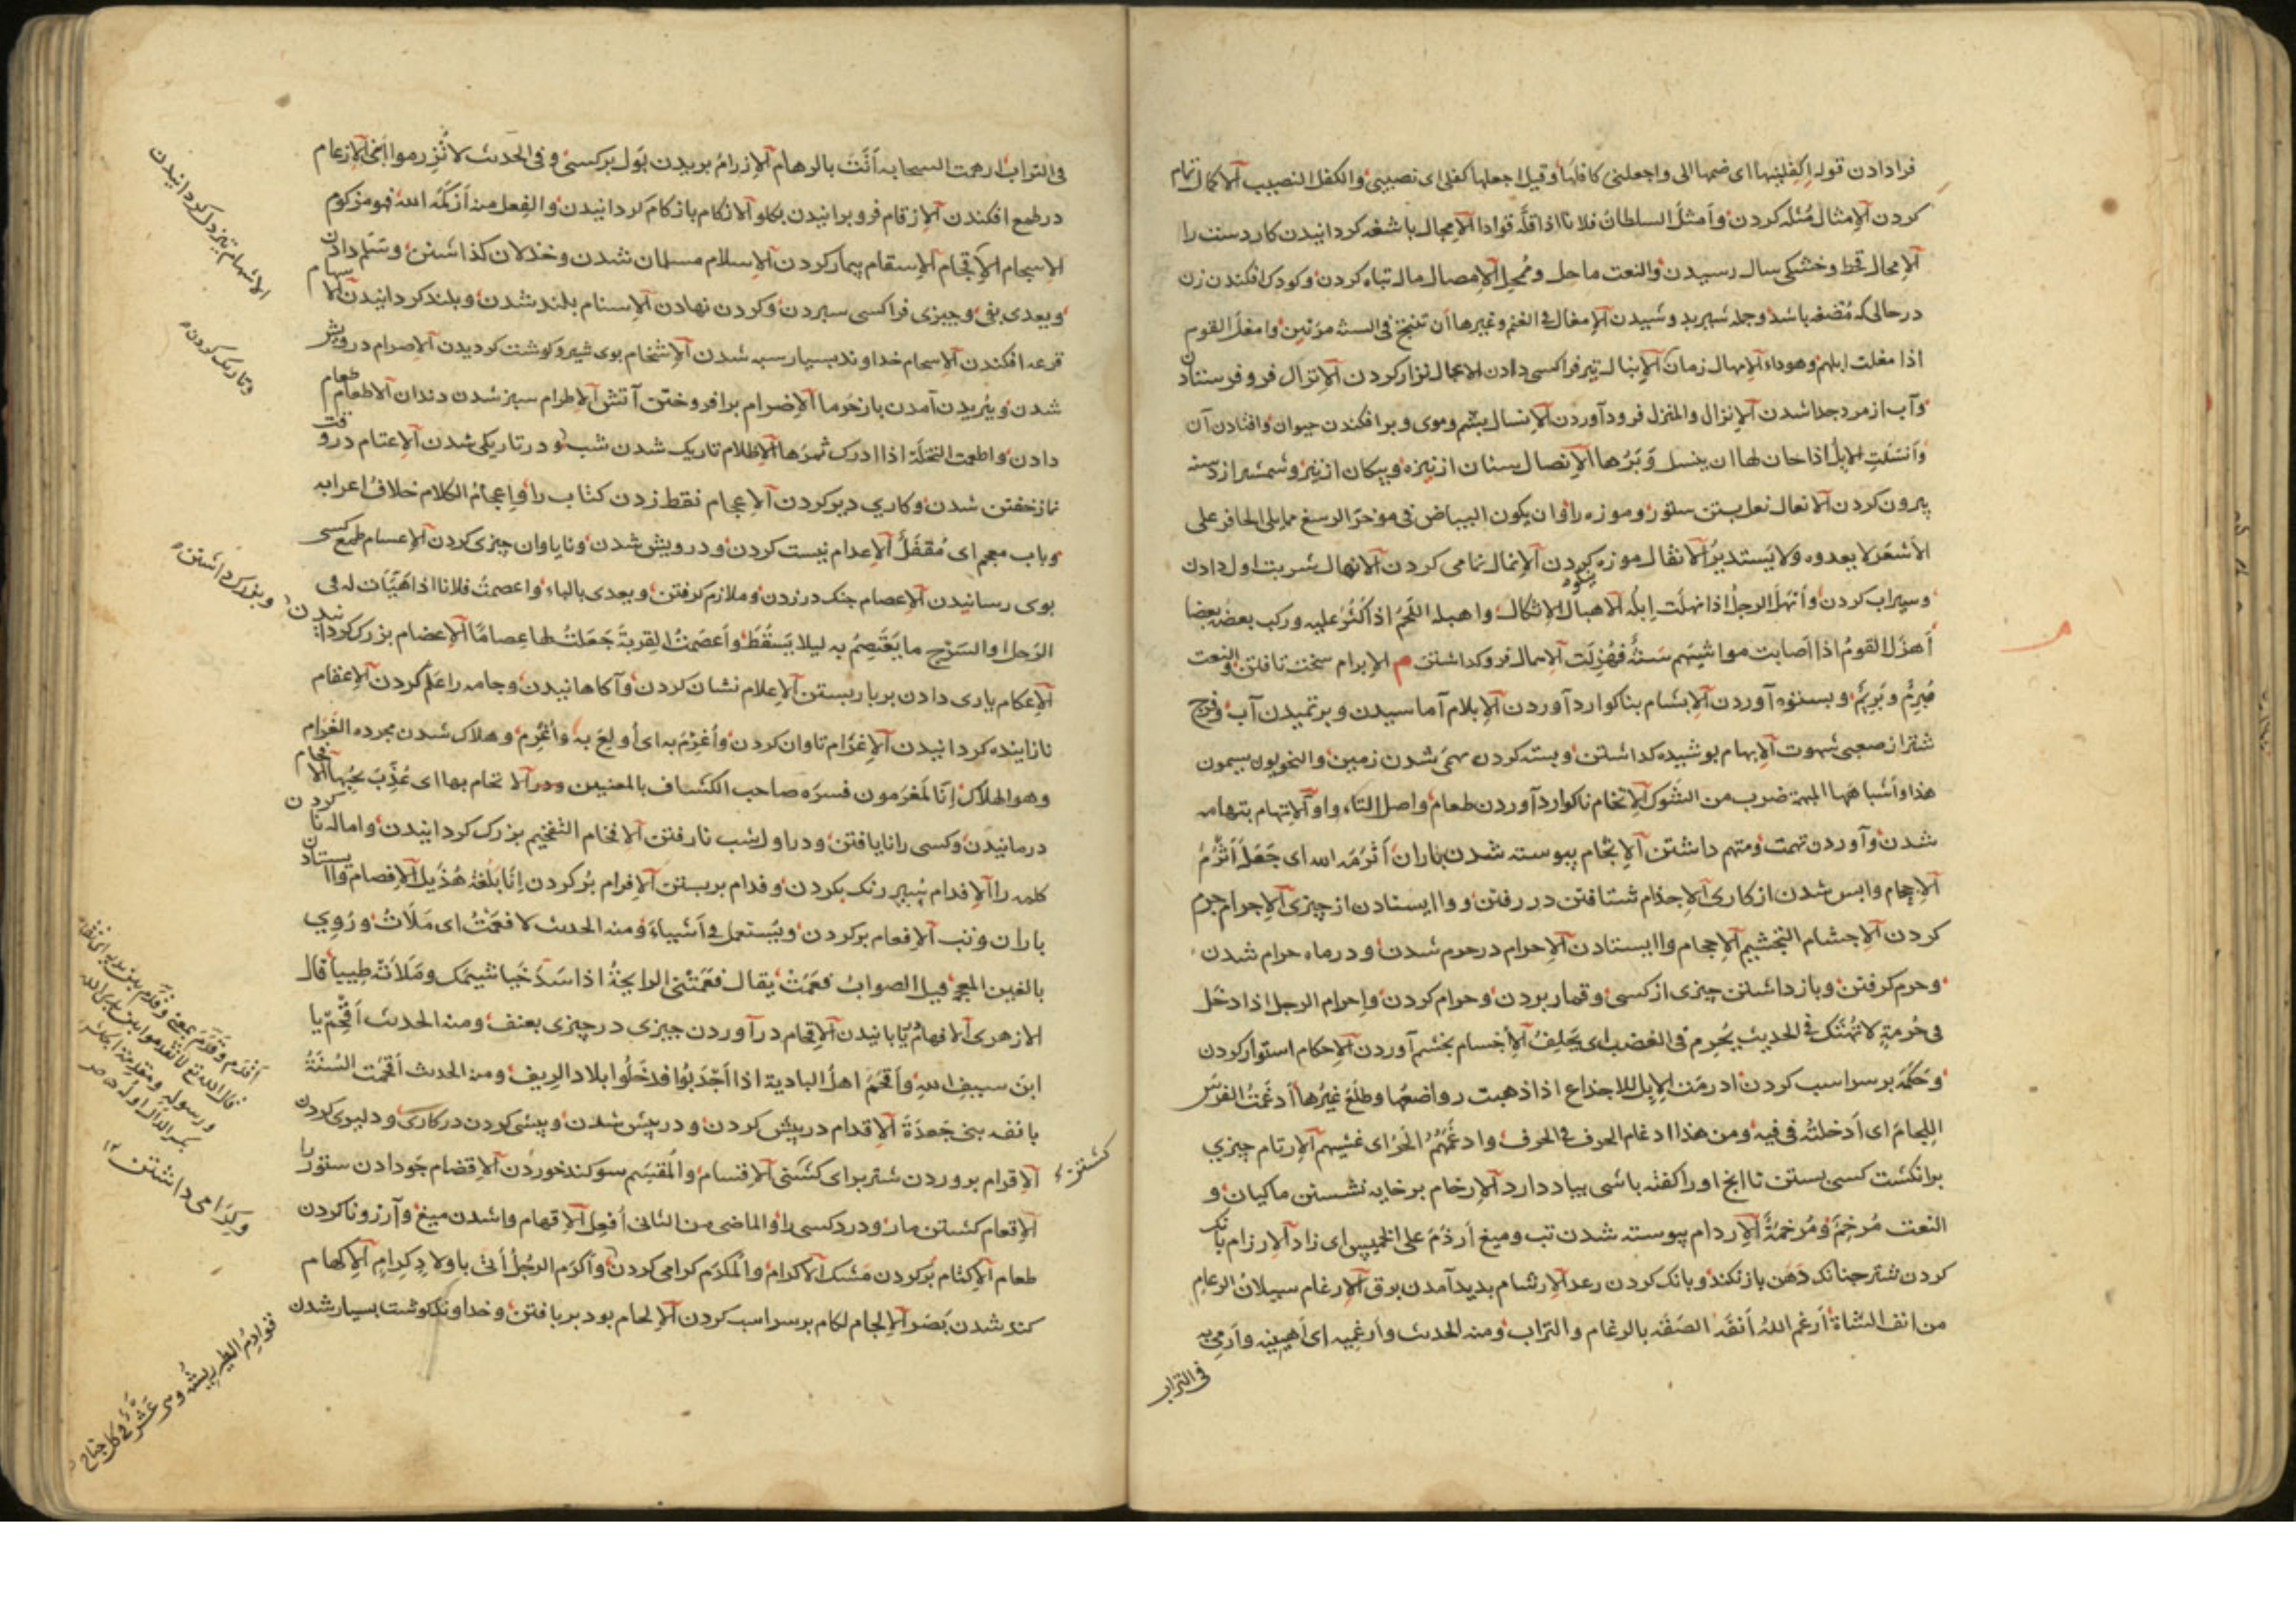 فرا دادن قوله اكفلنيها اى ضمها الى واجعلنى كافلها وقيل اجعلها كفلى اى نصيبى والكفل النصيب الاكمال تمام
كردن الإمثال مُثله كردن وأمثل السلطان فلانا اذا قتله قوادا الإمجال باشغه كردانيدن كار دست را
الإمحال قحط وخشكى سال رسيدن والنعت ماحل ومُمحِل الإمصال مال تباه كردن وكودك افكندن زن
درحالى كه مُضغه باشد الإمغال فى الغنم وغيرها أن تنتج فى السنة مرتين وامغل القوم
اذا مغلت ابلهم وهو داء الإمهال زمان الإنبال تير فرا كسى دادن الإنزال فرو فرستادن
وآب از مرد جدا شدن الإنزال والمنزل فرود آوردن الإنسال پشم وموى وپر افكندن حيوان وافتادن آن
وأنسلت الإبل اذا حان لها ان ينسل وَبَرُها الإنصال سنان از نيزه وپيكان از تير وشمشير از دسته
بيرون كردن الانعال نعل بستن ستور وموزه را وان يكون البياض فى مؤخر الرسغ مما يلى الحافر على
الأشعر لا يعدوه ولا يستدير الانقال موزه كردن الإنمال نمامى كردن الانهال شربت اول دادن
وسيراب كردن وأنهل الرجل اذا نهلت إبله الاهبال الإثكال واهبله اللحم اذا كثر عليه وركب بعضه بعضا
أهزل القوم اذا اصابت مواشيهم سنةٌ فهُزِلت الإهمال فرو كذاشتن م الإبرام سخت تافتن والنعت
مُبرم وبَريم وبستوه آوردن الإبشام بناكوارد آوردن الإبلام آماسيدن وبر تميدن آب وفرج
شتر از صعبى شهوت الإبهام بوشيده كذاشتن وبسته كردن بهمى شدن زمين والنحويون يسمون
هذا واشباهها المبهمة ضرب من الشوك الإتخام ناكوارد آوردن طعام واصل التاء واو الإتهام بتهامه
شدن وآوردن تهمت ومتهم داشتن الإثجام پيوسته شدن باران أثرمه الله اى جعله أثرم
الإجحام واپس شدن از كارى الإجذام شتافتن در رفتن ووا ايستادن از چيزى الإجرام جرم
كردن الإجشام التجشيم الإحجام وا ايستادن الإحرام در حرم شدن ودر ماه حرام شدن
وحرم كرفتن وباز داشتن چيزى از كسى وقمار بردن وحرام كردن واحرام الرجل اذا دخل
فى حُرمةٍ لا تُهتك فى الحديث يُحرم فى الغضب اى يحلف الأخسام بخشم آوردن الإحكام استوار كردن
وحَكَمه بر سر اسب كردن ادرمت الإبل للاجذاع اذا ذهبت رواضعها وطلع غيرها أدغمت الفرس
اللجام اى أدخلته فى فيه ومن هذا ادغام الحرف فى الحرف وادغمهم الحر اى غشيهم الإرتام چيزى
بر انكشت كسى بستن تا آنچ اورا كفته باشى بياد دارد الإرخام بر خايه نشستن ماكيان و
النعت مُرخِم ومُرخمة الإردام پيوسته شدن تب وميغ أرذم على الخمسين اى زاد الإرزام بانك
كردن شتر چنانك دهن باز نكند وبانك كردن رعد الإرشام پديد آمدن برق الإرغام سيلان الرعام
من انف الشاة أرغم الله أنفه الصقه بالرغام والتراب ومنه الحديث وأرغميه اى أهينيه وارمى به
فى التراب
فى التراب ارهمت السحابه أتت بالرهام الإزرام بريدن بول بر كسى وفى الحديث لا تُزرموا ابنى الإزعام
در طمع افكندن الإزقام فرو برانيدن بكلو الازكام با زكام كردانيدن والفعل منه أزكمه الله فهو مزكوم
الإسجام الإثجام الإسقام بيمار كردن الإسلام مسلمان شدن وخذلان كذاشتن وسلم دادن
ويعدى بفى وچيزى فرا كسى سپردن وكردن نهادن الإسنام بلند شدن وبلند كردانيدن الإسهام
قرعه افكندن الإشحام خداوند بسيار پيه شدن الإشخام بوى شير وكوشت كرديدن الإصرام درويش
شدن وببُريدن آمدن بار خرما الإضرام برافروختن آتش الإطرام سبز شدن دندان الإطعام طعام
دادن واطعمت النخلة اذا ادرك ثمرها الإظلام تاريك شدن شب ودر تاريكى شدن الإعتام در وقت
نماز خفتن شدن وكارى دير كردن الإعجام نقط زدن كتاب را وإعجام الكلام خلاف اعرابه
وباب معجم اى مُقفل الإعدام نيست كردن ودرويش شدن ونايا وان چيزى كردن الإعسام طمع كسى
بوى رسانيدن الإعصام چنك در زدن وملازم كرفتن ويعدى بالباء واعصمت فلانا اذا هيأت له فى
الرحل او السرج ما يعتصم به ليلا يسقط وأعصمت القربة جعلت لها عصاما الإعضام بزرك كردانيدن
الإعكام يارى دادن بر بار بستن الإعلام نشان كردن وآكاهانيدن وجامه را علم كردن الإعقام
نازاينده كردانيدن الإغرام تاوان كردن وأُغرم به اى أُولع به وأُغرم وهلاك شدن مجرده الغرام
وهو الهلاك إنا لمغرمون فسره صاحب الكشاف بالمعنيين الإفحام
درمانيدن وكسى را نايافتن ودر اول شب نارفتن الإفخام التفخيم بزرك كردانيدن واماله ناكردن
كلمه را الإفدام سير رنك بكردن وفدام بر بستن الإفرام پر كردن إناء بلغة هذيل الإفصام وا ايستادن
باران وتب الإفعام پر كردن ويستعمل فى أشياء ومنه الحديث لافعمت اى ملأت ورُوِي
بالغين المعجمه قيل الصواب فعمت يقال فعمتنى الرايحة اذا سدت خياشيمك وملأته طيبا قال
الازهرى الإفهام يابانيدن الإقحام در آوردن چيزى در چيزى بعنف ومنه الحديث أقحم يا
ابن سيف الله وأُقحم اهل البادية اذا اجدبوا فدخلوا بلاد الريف ومن الحديث اقحمت السنة
بانغه بنى جعدة الإقدام در پيش كردن ودر پيش شدن وپيشى كردن در كارى ودليرى كردن
الإقرام پروردن شتر براى كشنى الإقسام والمقسم سوكند خوردن الإقضام جو دادن ستور را
الإقعام كشتن مار ودرد كسى را والماضى من الثانى أُفعل الإقهام وا شدن ميغ وآرزو ناكردن
طعام الإكتام پر كردن مشك الاكرام والمكرم كرامى كردن وأكرم الرجل أتى باولاد كرام الإكهام
كند شدن بصر الإلجام لكام بر سر اسب كردن الإلحام بود بر بافتن وخداوند كوشت بسيار شدن
وتاريك كردن
وبزرك داشتن
كشتن
وكرامى داشتن
قوادم الطير ريشه وهى عشر فى كل جناح